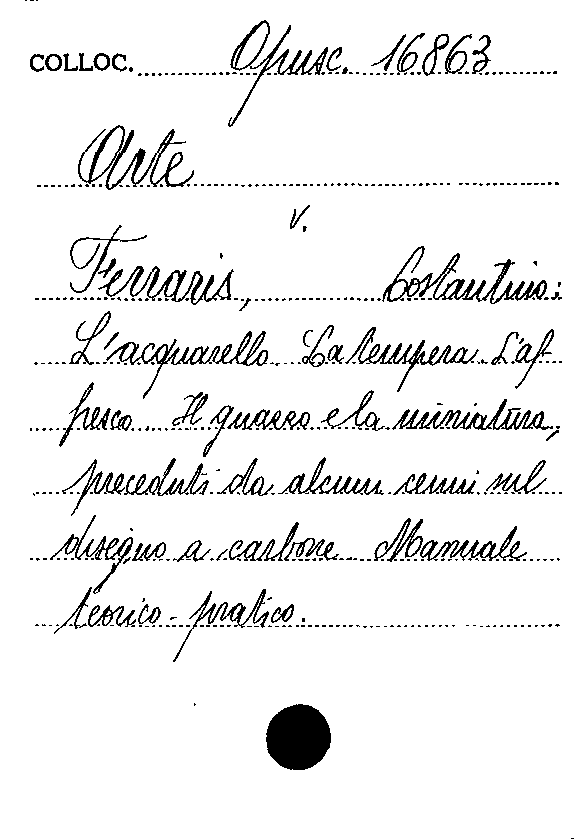 COLLOC. Opusc. 16863
Arte
v.
Ferraris, Costantino:
L'acquarello. La tempera. L'af-
fresco. Il guazzo e la miniatura,
preceduti da alcuni cenni sul
disegno a carbone. Manuale
teorico-pratico.